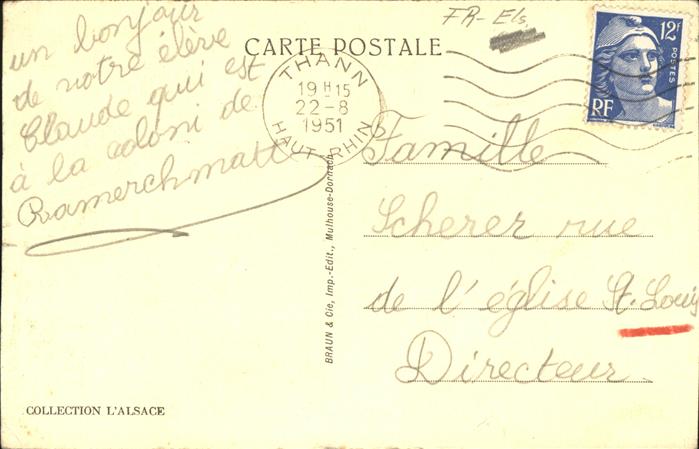 FR-Els.
12F
POSTES
RF
CARTE POSTALE
THANN
19H15
22-8
1951
HAUT-RHIN
un bonjour
de notre élève
Claude qui est
à la coloni de
Ramerchmatt
Famille
Scherer rue
de l'église St. Louis
Directeur
BRAUN & Cie, Imp.-Edit., Mulhouse-Dornach
COLLECTION L'ALSACE